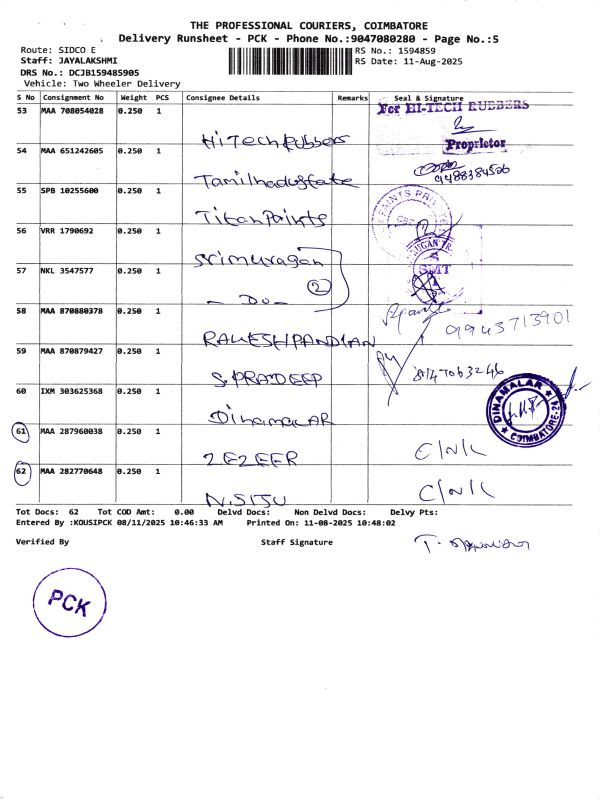 THE PROFESSIONAL COURIERS, COIMBATORE
Delivery Runsheet - PCK - Phone No.:9047080280 - Page No.:5
Route: SIDCO E
RS No.: 1594859
Staff: JAYALAKSHMI
RS Date: 11-Aug-2025
DRS No.: DCJB159485905
Vehicle: Two Wheeler Delivery
S No Consignment No Weight PCS Consignee Details Remarks Seal & Signature
53 MAA 708054028 0.250 1
For HI-TECH RUBBERS
HiTech Rubbers
Proprietor
54 MAA 651242605 0.250 1
Tamilnadu State
9488384506
55 SPB 10255600 0.250 1
Titan Paints
56 VRR 1790692 0.250 1
Srimurugan
57 NKL 3547577 0.250 1
SMT
- Do - 2
58 MAA 870880378 0.250 1
9943713901
RAKESHPANDIAN
59 MAA 870879427 0.250 1
S.PRADEEP
8147063246
60 IXM 303625368 0.250 1
DINAMALAR
COIMBATORE-24
Dinamalar
61 MAA 287960038 0.250 1
ZEZEER
C/N/L
62 MAA 282770648 0.250 1
N.SIJU
C/N/L
Tot Docs: 62 Tot COD Amt: 0.00 Delvd Docs: Non Delvd Docs: Delvy Pts:
Entered By :KOUSIPCK 08/11/2025 10:46:33 AM Printed On: 11-08-2025 10:48:02
Verified By Staff Signature
PCK